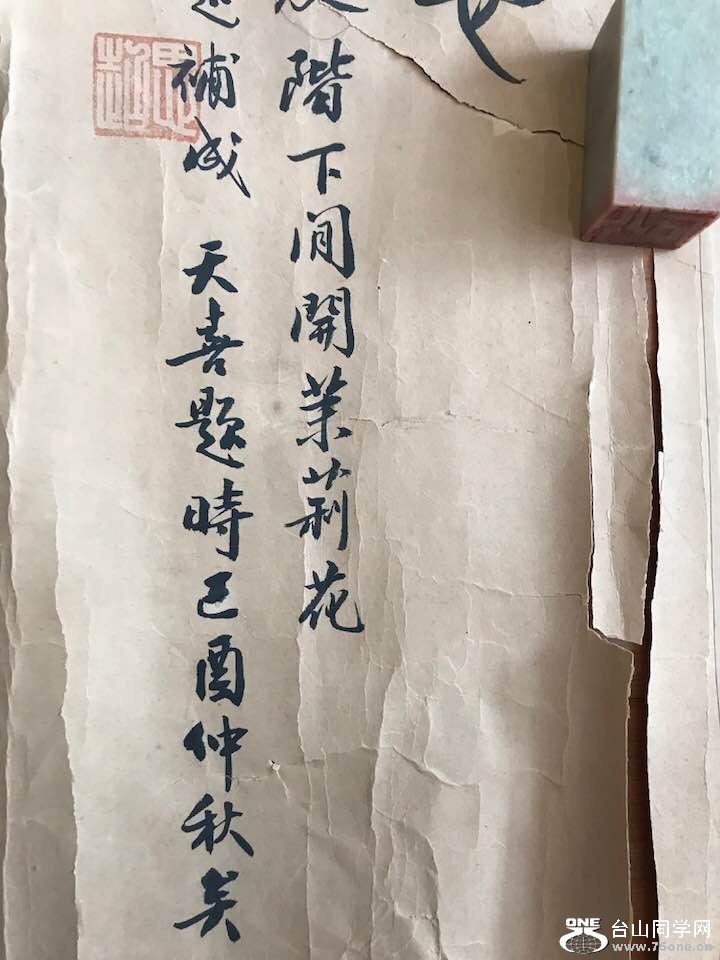 階下閒開茉莉花
補成 天喜題時己酉仲秋矣
ONE 台山同学网
www.75one.com